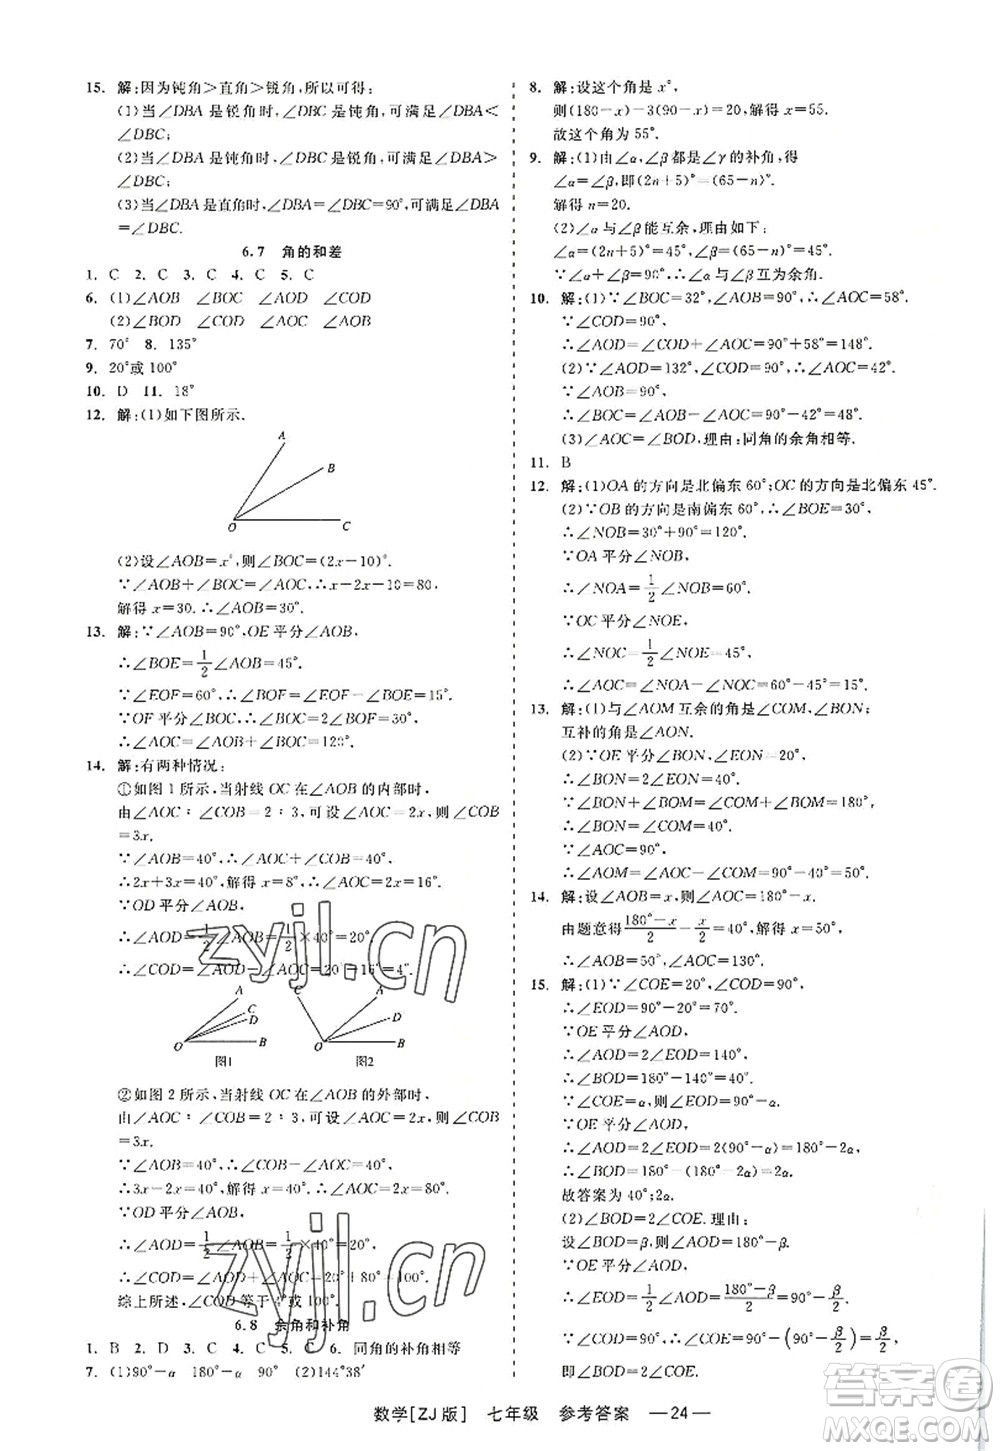 15. 解:因为钝角>直角>锐角,所以可得:
(1)当∠DBA是锐角时,∠DBC是钝角,可满足∠DBA<
∠DBC;
(2)当∠DBA是钝角时,∠DBC是锐角,可满足∠DBA>
∠DBC;
(3)当∠DBA是直角时,∠DBA=∠DBC=90°,可满足
∠DBA=∠DBC.
6.7 角的和差
1. C 2. C 3. C 4. C 5. C
6. (1)∠AOB ∠BOC ∠AOD ∠COD
(2)∠BOD ∠COD ∠AOC ∠AOB
7. 70° 8. 135°
9. 20°或100°
10. D 11. 18°
12. 解:(1)如下图所示.
A
B
O C
(2)设∠AOB=x°,则∠BOC=(2x-10)°.
∵∠AOB+∠BOC=∠AOC,∴x+2x-10=80,
解得x=30.∴∠AOB=30°.
13. 解:∵∠AOB=90°,OE平分∠AOB,
∴∠BOE=1/2∠AOB=45°.
∵∠EOF=60°,∴∠BOF=∠EOF-∠BOE=15°.
∵OF平分∠BOC,∴∠BOC=2∠BOF=30°.
∴∠AOC=∠AOB+∠BOC=120°.
14. 解:有两种情况:
①如图1所示,当射线OC在∠AOB的内部时,
由∠AOC∶∠COB=2∶3,可设∠AOC=2x,∠COB
=3x.
∵∠AOB=40°,∴∠AOC+∠COB=40°.
∴2x+3x=40°,解得x=8°,∴∠AOC=2x=16°.
∵OD平分∠AOB,
∴∠AOD=1/2∠AOB=1/2×40°=20°.
∴∠COD=∠AOD-∠AOC=20°-16°=4°.
A
C
D
O B
图1
C A
D
O B
图2
②如图2所示,当射线OC在∠AOB的外部时,
由∠AOC∶∠COB=2∶3,可设∠AOC=2x,∠COB
=3x.
∵∠AOB=40°,∴∠COB-∠AOC=∠AOB=40°.
∴3x-2x=40°,解得x=40°,∴∠AOC=2x=80°.
∵OD平分∠AOB,
∴∠AOD=1/2∠AOB=1/2×40°=20°.
∴∠COD=∠AOD+∠AOC=20°+80°=100°.
综上所述,∠COD等于4°或100°.
6.8 余角和补角
1. B 2. D 3. C 4. C 5. C 6. 同角的补角相等
7. (1)90°-α 180°-α 90° (2)144°38′
8. 解:设这个角是x°,
则(180-x)-3(90-x)=20,解得x=55.
故这个角为55°.
9. 解:(1)由∠α,∠β都是∠γ的补角,得
∠α=∠β,即(2n+5)°=(65-n)°.
解得n=20.
(2)∠α与∠β能互余,理由如下:
∠α=(2n+5)°=45°,∠β=(65-n)°=45°.
∵∠α+∠β=90°,∴∠α与∠β互为余角.
10. 解:(1)∵∠BOC=32°,∠AOB=90°,∴∠AOC=58°.
∵∠COD=90°,
∴∠AOD=∠COD+∠AOC=148°.
(2)∵∠AOD=132°,∴∠AOC=42°.
∵∠AOB=90°,
∴∠BOC=∠AOB-∠AOC=90°-42°=48°.
(3)∠AOC=∠BOD,理由:同角的余角相等.
11. B
12. 解:(1)OA的方向是北偏东60°;OC的方向是北偏东45°.
(2)∵OB的方向是南偏东60°,∴∠BOE=30°.
∴∠NOB=30°+90°=120°.
∵OA平分∠NOB,
∴∠NOA=1/2∠NOB=60°.
∵OC平分∠NOE,
∴∠NOC=1/2∠NOE=45°.
∴∠AOC=∠NOA-∠NOC=60°-45°=15°.
13. 解:(1)与∠AOM互余的角是∠COM,∠BON;
互补的角是∠AON.
(2)∵OE平分∠BON,∠EON=20°,
∴∠BON=2∠EON=40°.
∵∠BON+∠BOM=∠COM+∠BOM=180°,
∴∠BON=∠COM=40°.
∵∠AOC=90°,
∴∠AOM=90°-∠COM=50°.
14. 解:设∠AOB=x,则∠AOC=180°-x.
由题意得(180°-x)/2-x/2=40°,解得x=50°,
∴∠AOB=50°,∠AOC=130°.
15. 解:(1)∵∠COE=20°,∠COD=90°,
∴∠EOD=90°-20°=70°.
∵OE平分∠AOD,
∴∠AOD=2∠EOD=140°,
∴∠BOD=180°-140°=40°.
∵∠COE=α,∴∠EOD=90°-α.
∵OE平分∠AOD,
∴∠AOD=2∠EOD=2(90°-α)=180°-2α,
∴∠BOD=180°-(180°-2α)=2α.
故答案为40°;2α.
(2)∠BOD=2∠COE.理由:
设∠BOD=β,则∠AOD=180°-β,
∵OE平分∠AOD,
∴∠EOD=1/2∠AOD=(180°-β)/2=90°-β/2.
∵∠COD=90°,∴∠COE=90°-(90°-β/2)=β/2,
即∠BOD=2∠COE.
数学[ZJ版] 七年级 参考答案 —24—
zyjl.cn
zyjl.cn
答案圈
MXQE.COM